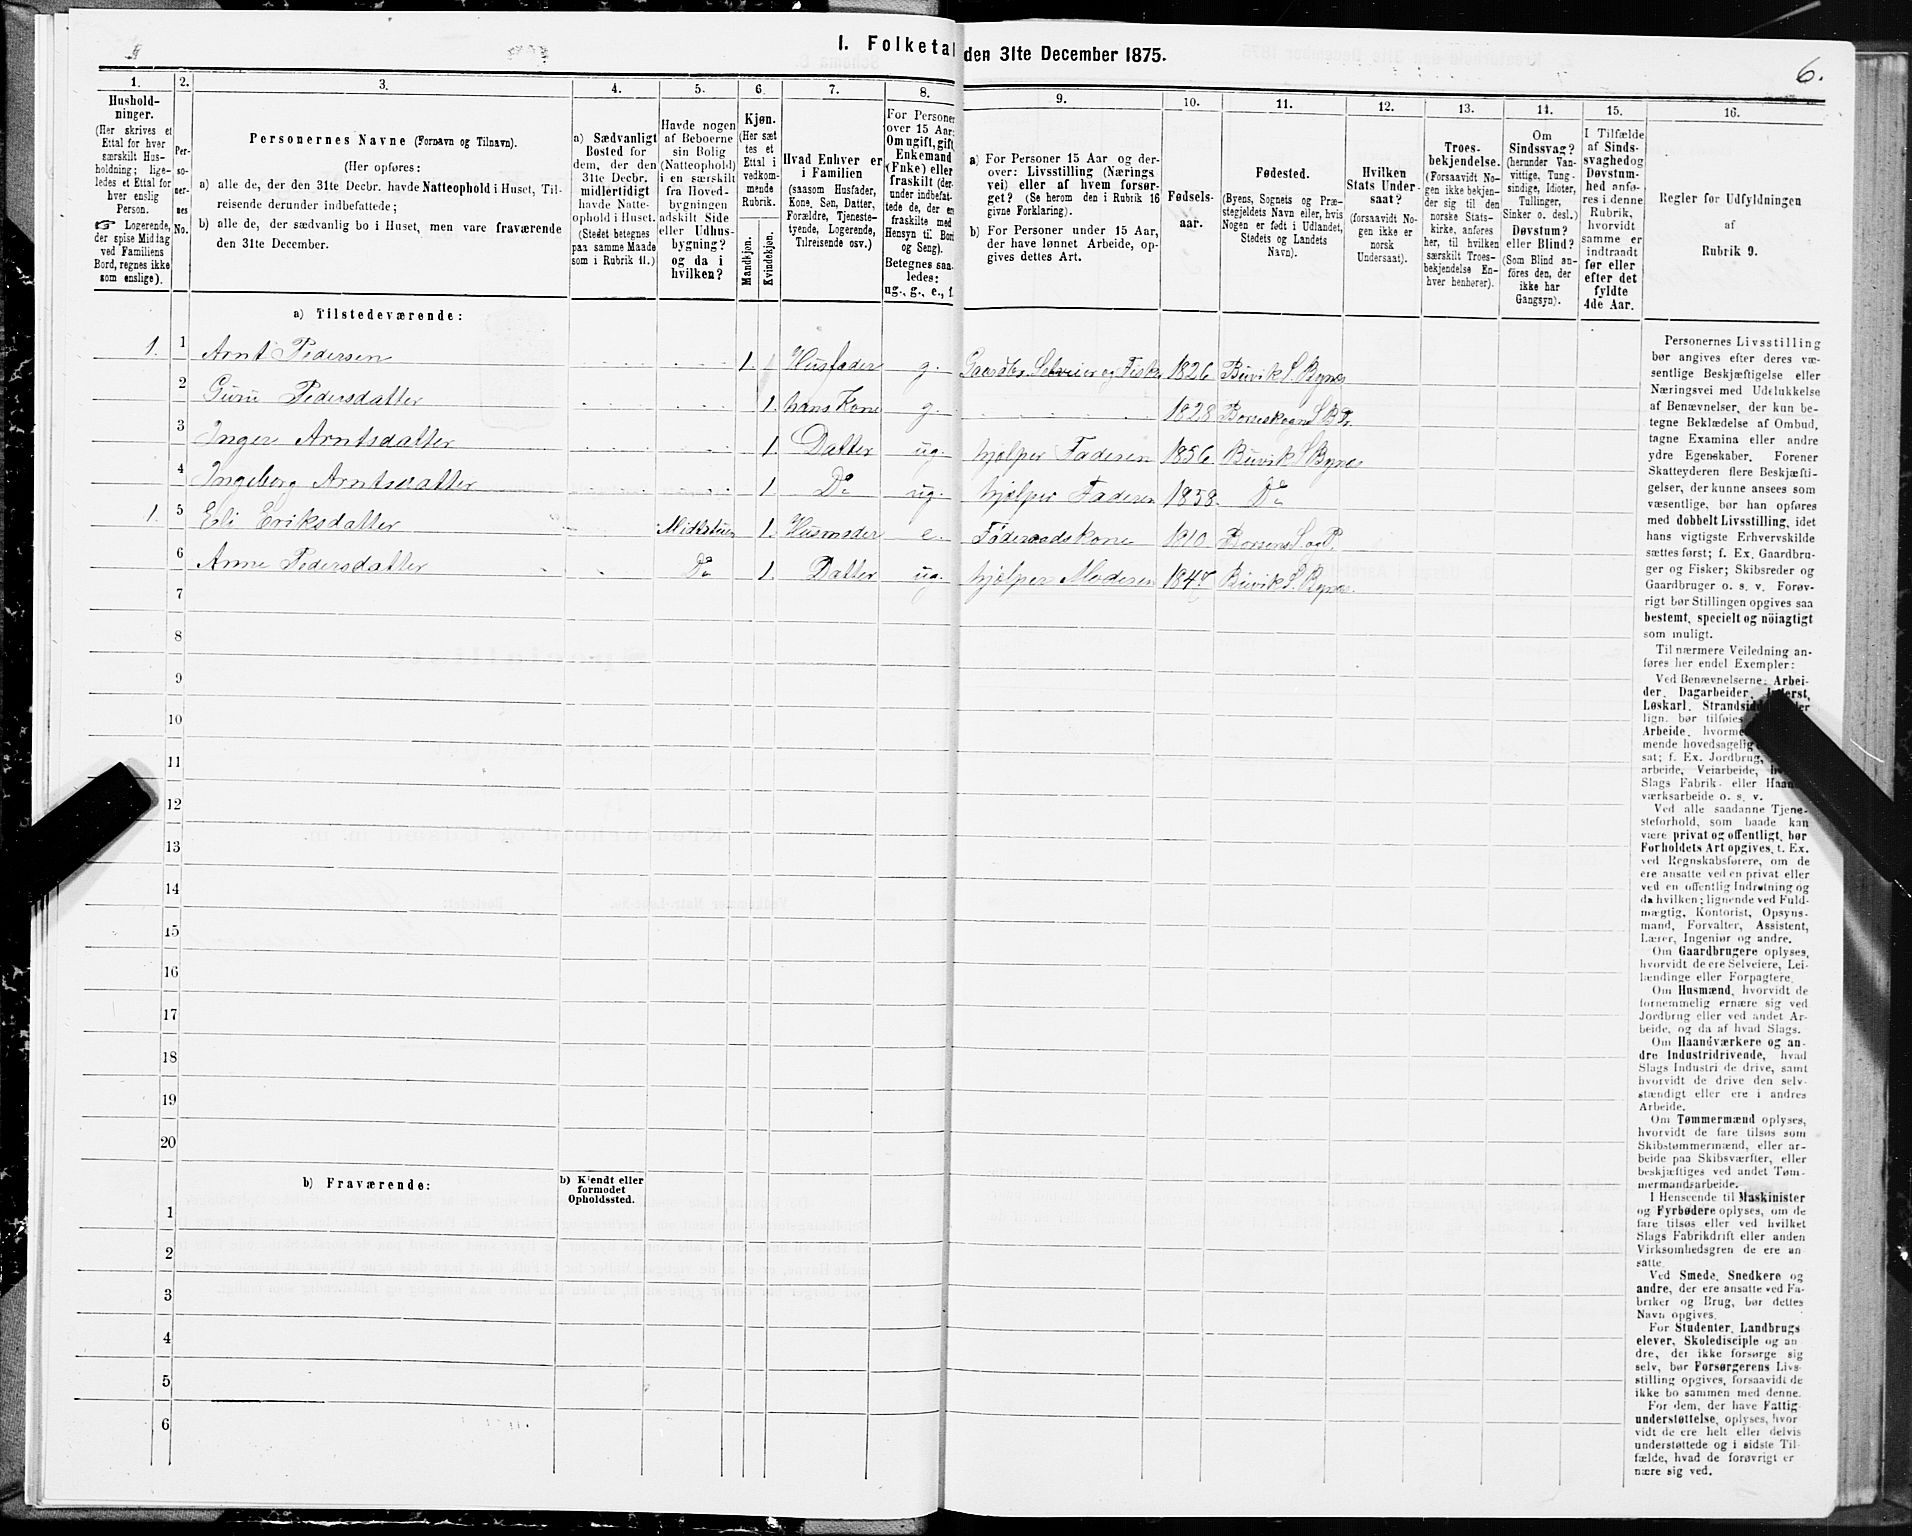 I. Folketal den 31te December 1875.
6.
1.
Hushold-
ninger.
(Her skrives et
Ettal for hver
særskilt Hus-
holdning; lige-
ledes et Ettal for
hver enslig
Person.
☞ Logerende,
der spise Middag
ved Familiens
Bord, regnes ikke
som enslige).
2.
Per-
so-
ner-
nes
No.
3.
Personernes Navne (Fornavn og Tilnavn).
(Her opføres:
a) alle de, der den 31te Decbr. havde Natteophold i Huset, Til-
reisende derunder indbefattede;
b) alle de, der sædvanlig bo i Huset, men vare fraværende
den 31te December.
4.
a) Sædvanligt
Bosted for
dem, der den
31te Decbr.
midlertidigt
havde Natte-
ophold i Huset.
(Stedet betegnes
paa samme Maade
som i Rubrik 11.)
5.
Havde nogen
af Beboerne
sin Bolig
(Natteophold)
i en særskilt
fra Hoved-
bygningen
adskilt Side
eller Udhus-
bygning?
og da i
hvilken?
6.
Kjøn.
(Her sæt
tes et
Ettal i
vedkom-
mende
Rubrik.
Mandkjøn.
Kvindekjøn.
7.
Hvad Enhver er
i Familien
(saasom Husfader,
Kone, Søn, Datter,
Forældre, Tjeneste-
tyende, Logerende,
Tilreisende osv.)
8.
For Personer
over 15 Aar:
Om ugift, gift,
Enkemand
(Enke) eller
fraskilt (der-
under indbefat-
tede de, der ere
fraskilte med
Hensyn til Bord
og Seng).
Betegnes saa-
ledes:
ug., g., e., f.
9.
a) For Personer 15 Aar og der-
over: Livsstilling (Nærings
vei) eller af hvem forsør-
get? (Se herom den i Rubrik 16
givne Forklaring).
b) For Personer under 15 Aar,
der have lønnet Arbeide, op-
gives dettes Art.
10.
Fødsels-
aar.
11.
Fødested.
(Byens, Sognets og Præ-
stegjeldets Navn eller, hvis
Nogen er født i Udlandet,
Stedets og Landets
Navn).
12.
Hvilken
Stats Under-
saat?
(forsaavidt No-
gen ikke er
norsk
Undersaat).
13.
Troes-
bekjendelse.
(Forsaavidt No-
gen ikke bekjen-
der sig til den
norske Stats-
kirke, anføres
her, til hvilken
særskilt Troes-
bekjendelse En-
hver henhører).
14.
Om
Sindssvag?
(herunder Van-
vittige, Tung-
sindige, Idioter,
Tullinger,
Sinker o. desl.)
Døvstum?
eller Blind?
(Som Blind an-
føres den, der
ikke har
Gangsyn).
15.
I Tilfælde
af Sinds-
svaghed og
Døvstum-
hed anfø-
res i denne
Rubrik,
hvorvidt
samme er
indtraadt
før eller
efter det
fyldte
4de Aar.
16.
Regler for Udfyldningen
af
Rubrik 9.
a) Tilstedeværende:
1. 1 Arnt Pedersen 1. Husfader g. Gaardbr. Selveier og Fisker 1826 Buvik S. Bynes
2 Guru Pedersdatter 1. hans Kone g. 1828 Børseskogn S B P.
3 Inger Arntsdatter 1. Datter ug. hjelper Faderen 1856 Buvik S Bynes
4 Ingeborg Arntsdatter 1 Do ug. hjelper Faderen 1858 Do
1. 5 Eli Eriksdatter Midtstuen 1. Husmoder e. Føderaadskone 1810 Børsens S. og P.
6 Anne Pedersdatter Do 1. Datter ug. hjelper Moderen 1847 Buvik S. Bynes.
7
8
9
10
11
12
13
14
15
16
17
18
19
20
b) Fraværende:
b) Kjendt eller
formodet
Opholdssted.
1
2
3
4
5
6
Personernes Livsstilling
bør angives efter deres væ-
sentlige Beskjæftigelse eller
Næringsvei med Udelukkelse
af Benævnelser, der kun be-
tegne Beklædelse af Ombud,
tagne Examina eller andre
ydre Egenskaber. Forener
Skatteyderen flere Beskjæfti-
gelser, der kunne ansees som
væsentlige, bør han opføres
med dobbelt Livsstilling, idet
hans vigtigste Erhvervskilde
sættes først; f. Ex. Gaardbru-
ger og Fisker; Skibsreder og
Gaardbruger o. s. v. Forøv-
rigt bør Stillingen opgives saa
bestemt, specielt og nöiagtigt
som muligt.
Til nærmere Veiledning an-
føres her endel Exempler:
Ved Benævnelserne: Arbei-
der, Dagarbeider, Inderst,
Løskarl, Strandsidder eller
lign. bør tilføies
Arbeide, hvormed
mende hovedsagelig
sat; f. Ex. Jordbrug,
arbeide, Veiarbeide,
Slags Fabrik- eller Haand-
værksarbeide o. s. v.
Ved alle saadanne Tjene-
steforhold, som baade kan
være privat og offentligt, bør
Forholdets Art opgives, t. Ex.
ved Regnskabsførere, om de
ere ansatte ved en privat eller
ved en offentlig Indretning og
da hvilken; lignende ved Fuld-
mægtig, Kontorist, Opsyns-
mand, Forvalter, Assistent,
Lærer, Ingeniør og andre.
Om Gaardbrugere oplyses,
hvorvidt de ere Selveiere, Lei-
lændinge eller Forpagtere.
Om Husmænd, hvorvidt de
fornemmelig ernære sig ved
Jordbrug eller ved andet Ar-
beide, og da af hvad Slags.
Om Haandværkere og an-
dre Industridrivende, hvad
Slags Industri de drive, samt
hvorvidt de drive den selv-
stændigt eller ere i andres
Arbeide.
Om Tømmermænd oplyses,
hvorvidt de fare tilsøs som
Skibstømmermænd, eller ar-
beide paa Skibsværfter, eller
beskjæftiges ved andet Tøm-
mermandsarbeide.
I Henseende til Maskinister
og Fyrbødere oplyses, om de
fare tilsøs eller ved hvilket
Slags Fabrikdrift eller anden
Virksomhedsgren de ere an
satte.
Ved Smede, Snedkere og
andre, der ere ansatte ved Fa-
briker og Brug, bør dettes
Navn opgives.
For Studenter, Landbrugs
elever, Skoledisciple og an
dre, der ikke forsørge sig
selv, bør Forsørgerens Livs-
stilling opgives, forsaavidt de
ikke bo sammen med denne.
For dem, der have Fattig-
understøttelse, oplyses, hvor
vidt de ere helt eller delvis
understøttede og i sidste Til-
fælde, hvad de forøvrigt er
nære sig ved.